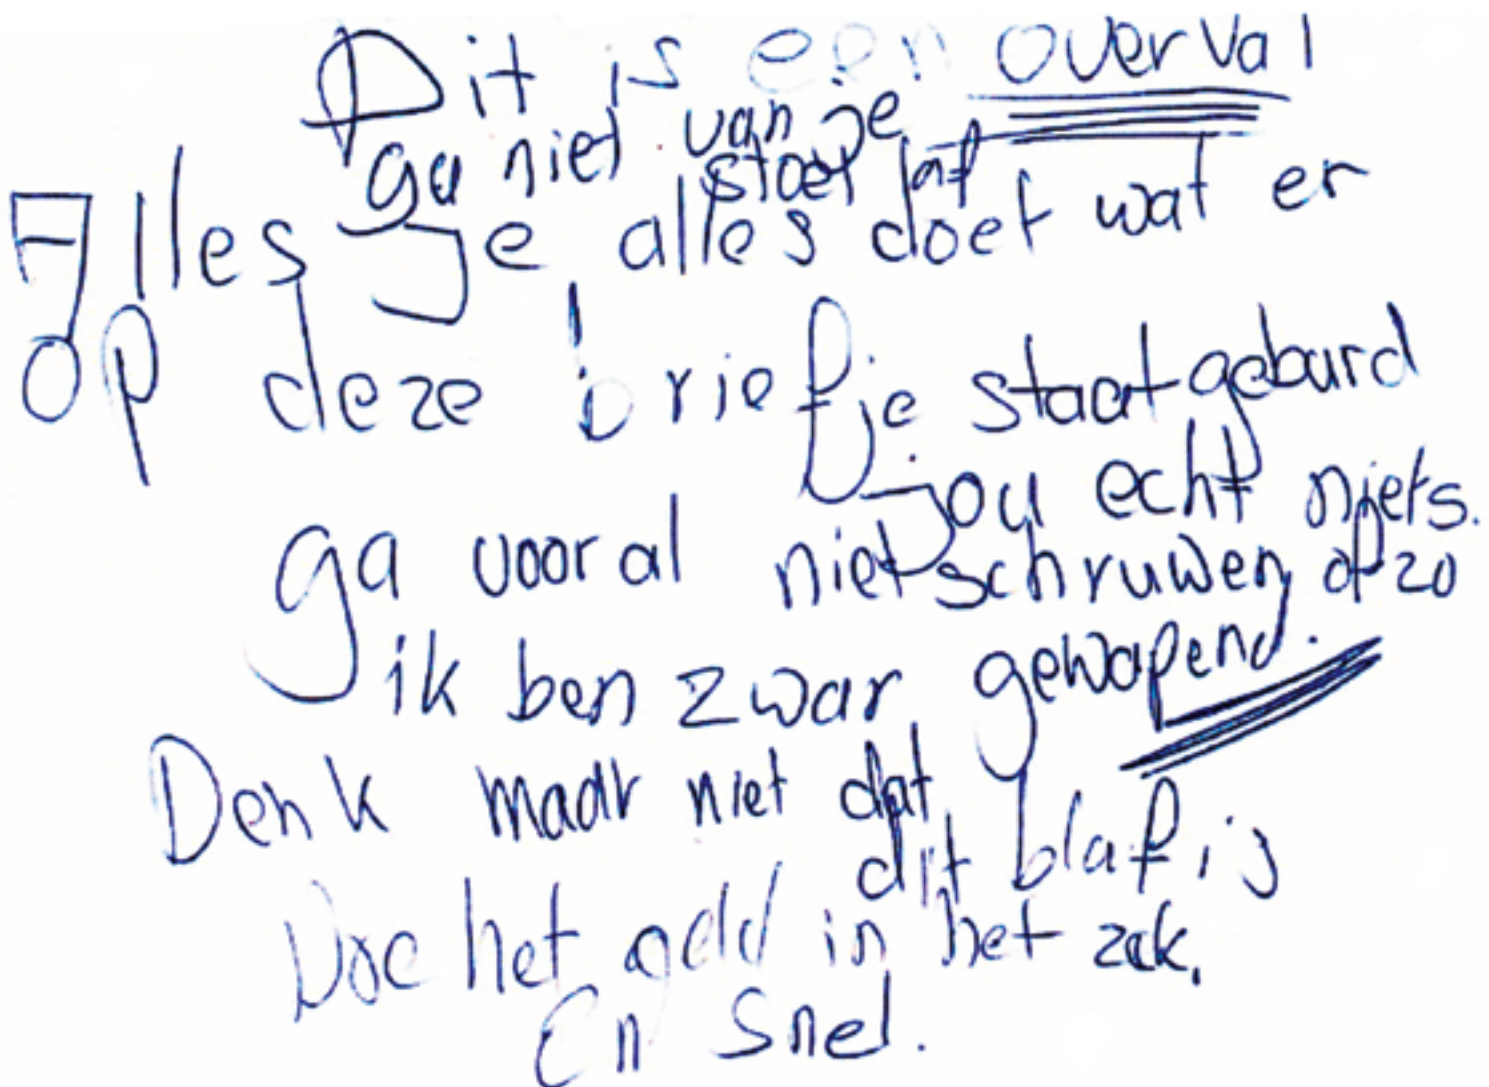 Dit is een overval
ga niet van je
stoel af
Alles je alles doet wat er
op deze briefje staat geburd
jou echt niets.
ga vooral niet schruwen of zo
ik ben zwar gewapend.
Denk maar niet dat
dit blaf is
Doe het geld in het zak.
En snel.